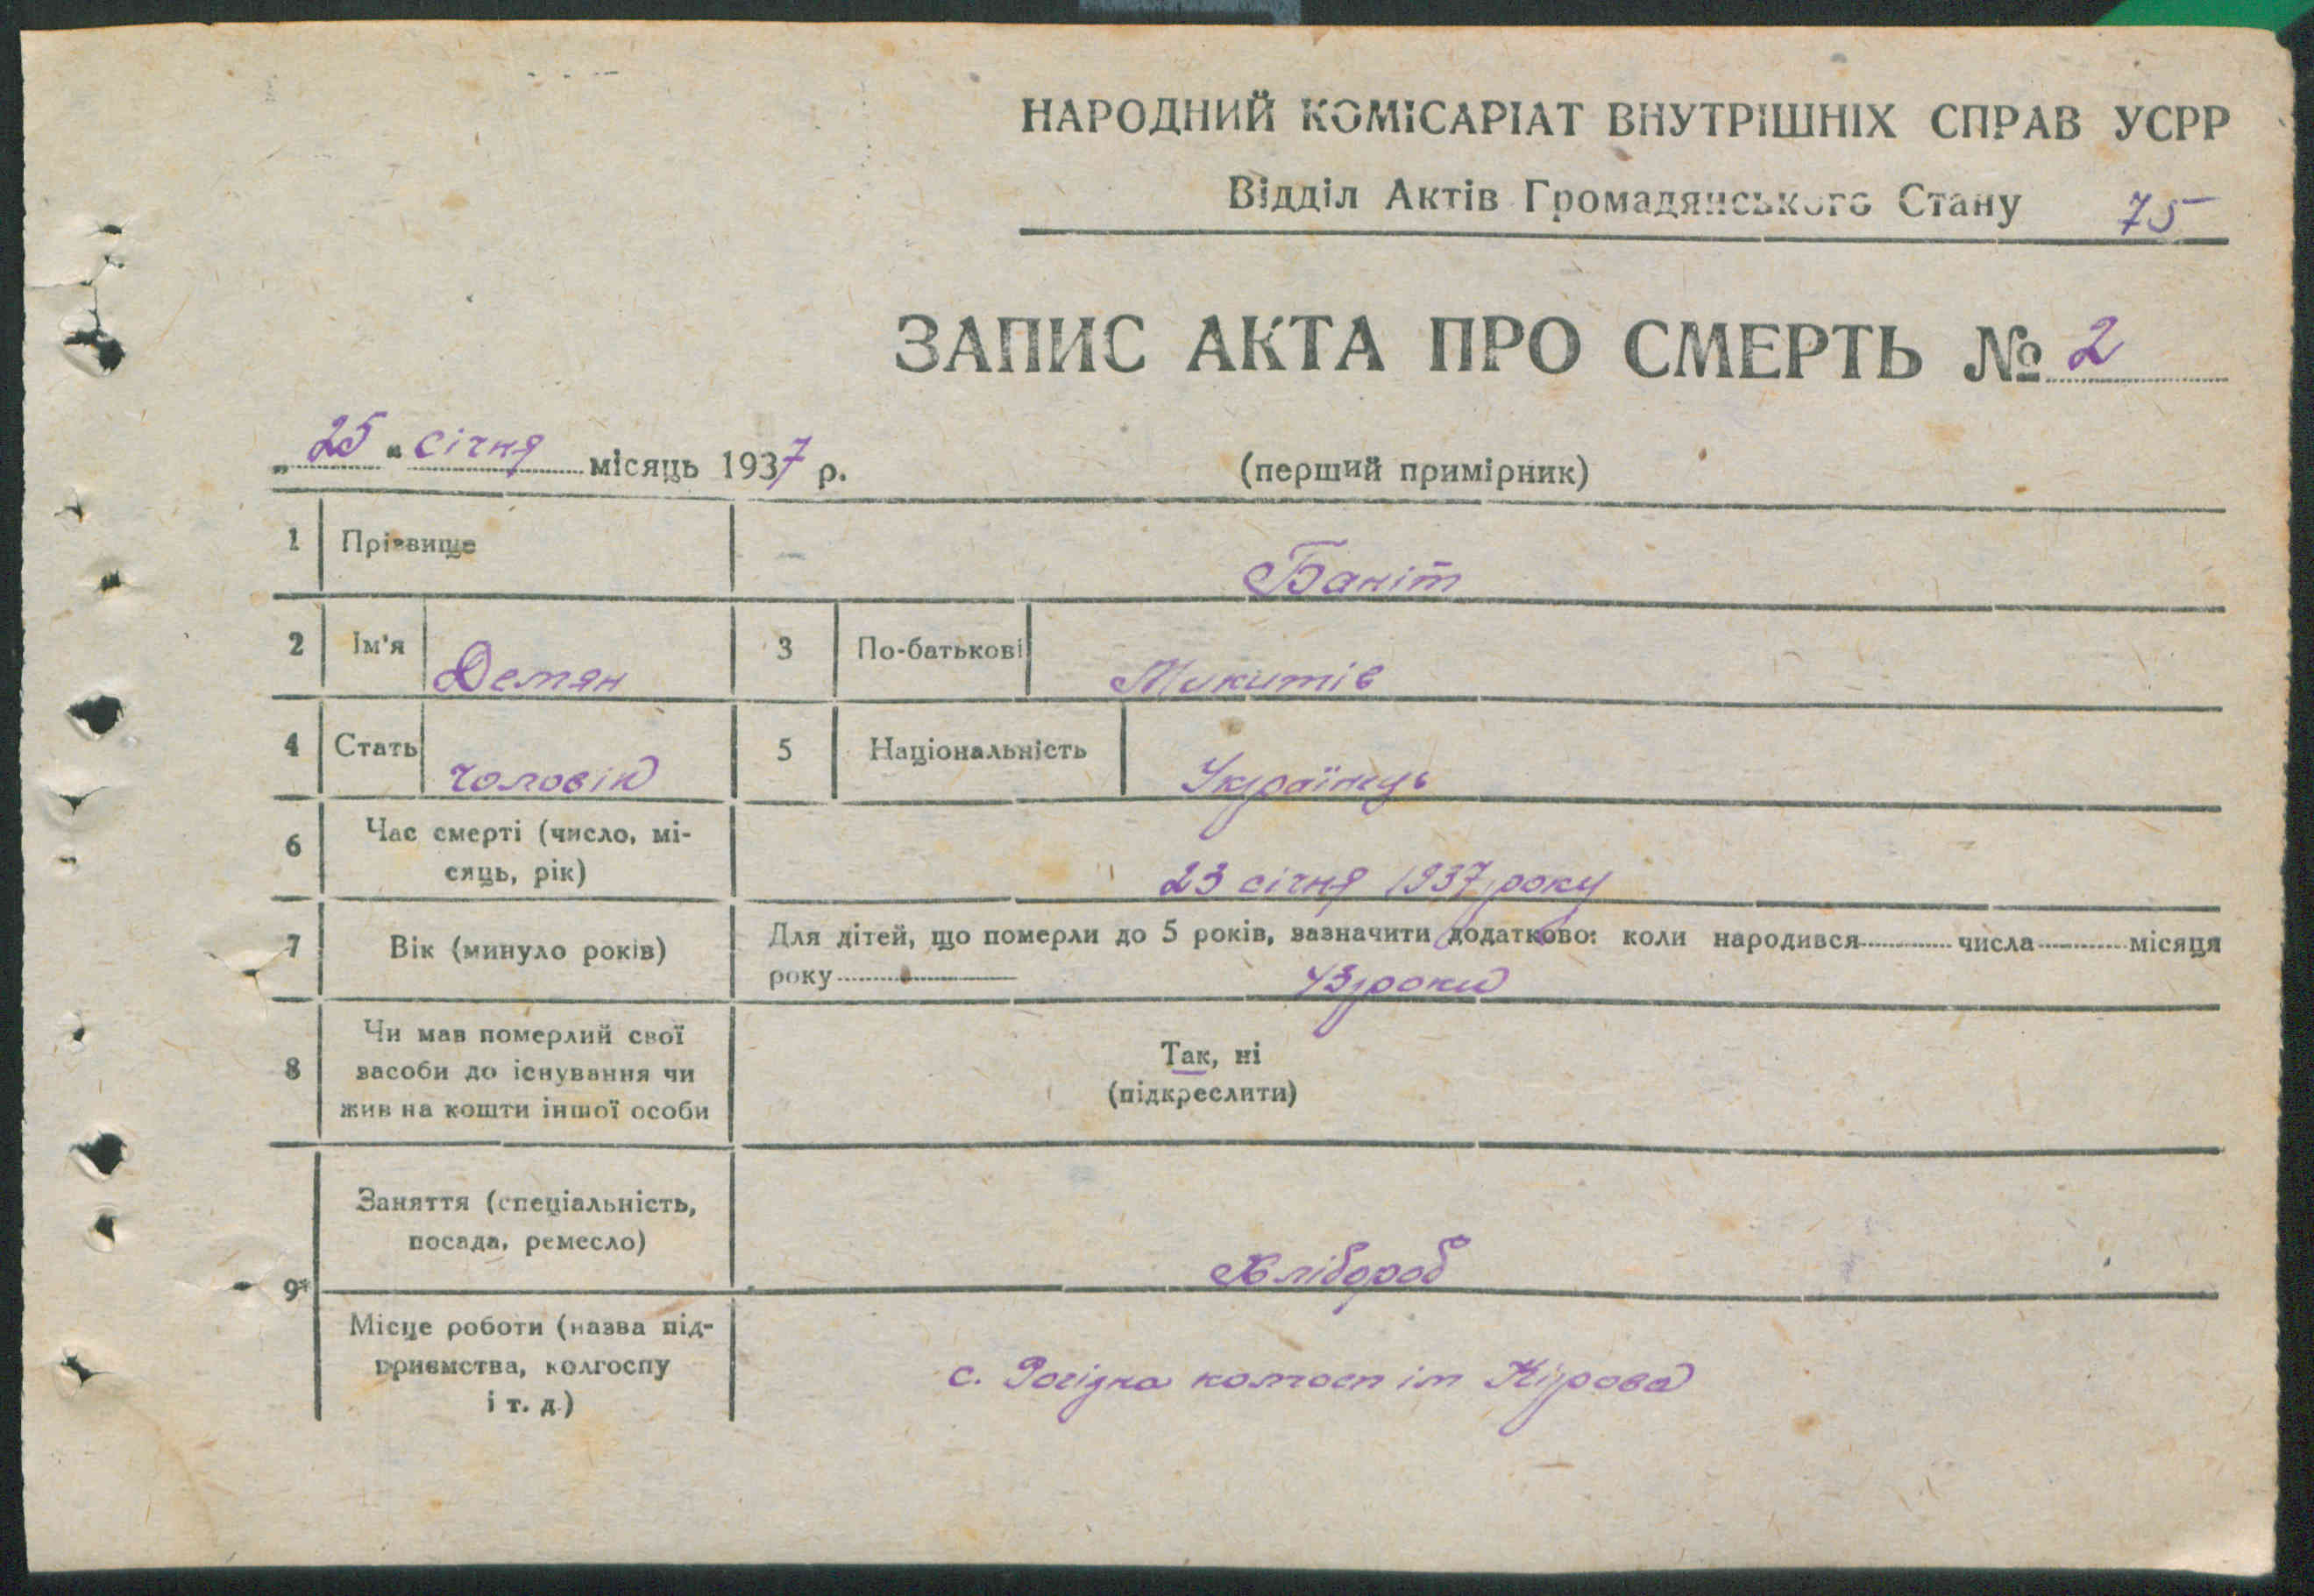 НАРОДНИЙ КОМІСАРІАТ ВНУТРІШНІХ СПРАВ УСРР
Відділ Актів Громадянського Стану 75
ЗАПИС АКТА ПРО СМЕРТЬ № 2
„25" січня місяць 1937 р. (перший примірник)
1 Прізвище Баніт
2 Ім'я Демян 3 По-батькові Микитів
4 Стать чоловік 5 Національність Українець
6 Час смерті (число, мі-
сяць, рік) 23 січня 1937 року
7 Вік (минуло років) Для дітей, що померли до 5 років, зазначити додатково: коли народився числа місяця
року 43 роки
8 Чи мав померлий свої
засоби до існування чи
жив на кошти іншої особи
Так, ні
(підкреслити)
9* Заняття (спеціальність,
посада, ремесло) Хлібороб
Місце роботи (назва під-
приємства, колгоспу
і т. д.)
с. колгосп ім Кірова